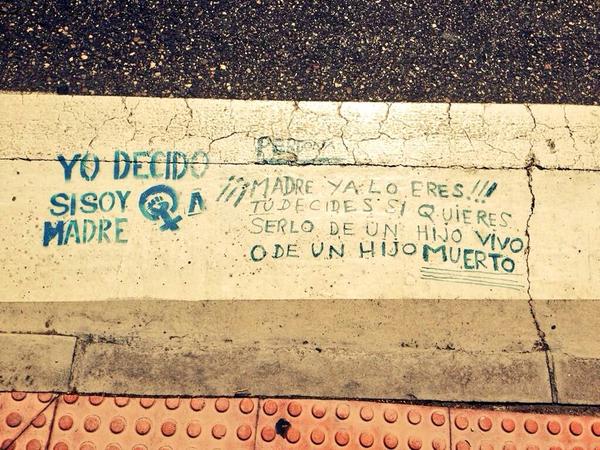 YO DECIDO
SI SOY
MADRE
PERDONA
¡¡¡MADRE YA LO ERES!!!
TU DECIDES SI QUIERES
SERLO DE UN HIJO VIVO
O DE UN HIJO MUERTO